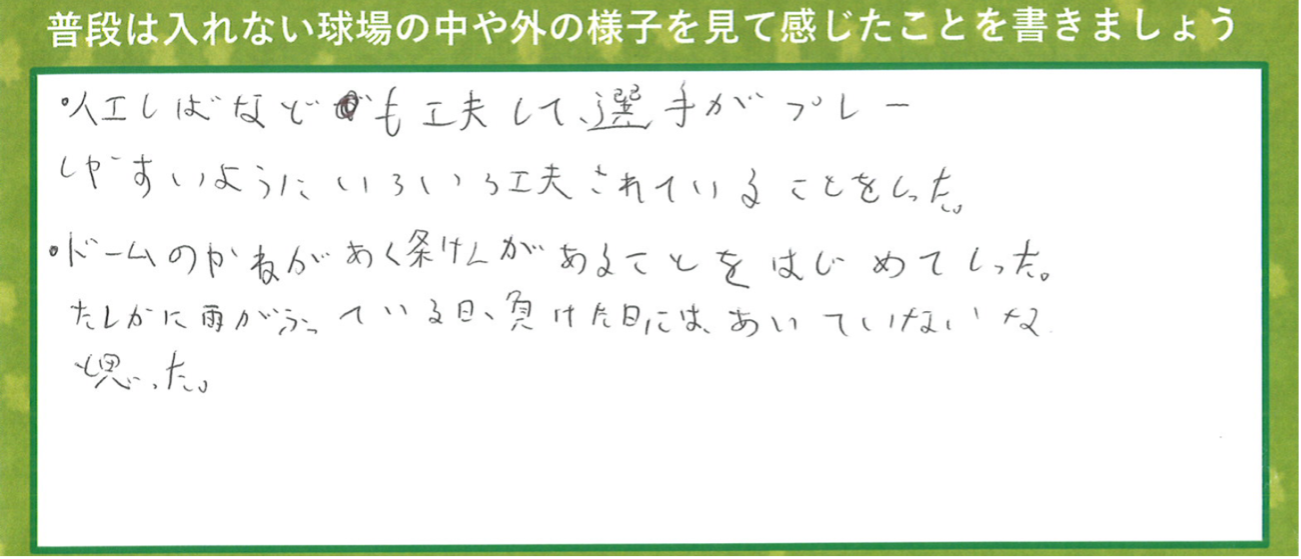 普段は入れない球場の中や外の様子を見て感じたことを書きましょう
・人工しばなども工夫して、選手がプレー
しやすいようにいろいろ工夫されていることをしった。
・ドームのかねがあく条けんがあることをはじめてしった。
たしかに雨がふっている日、負けた日には、あいていないな
と思った。